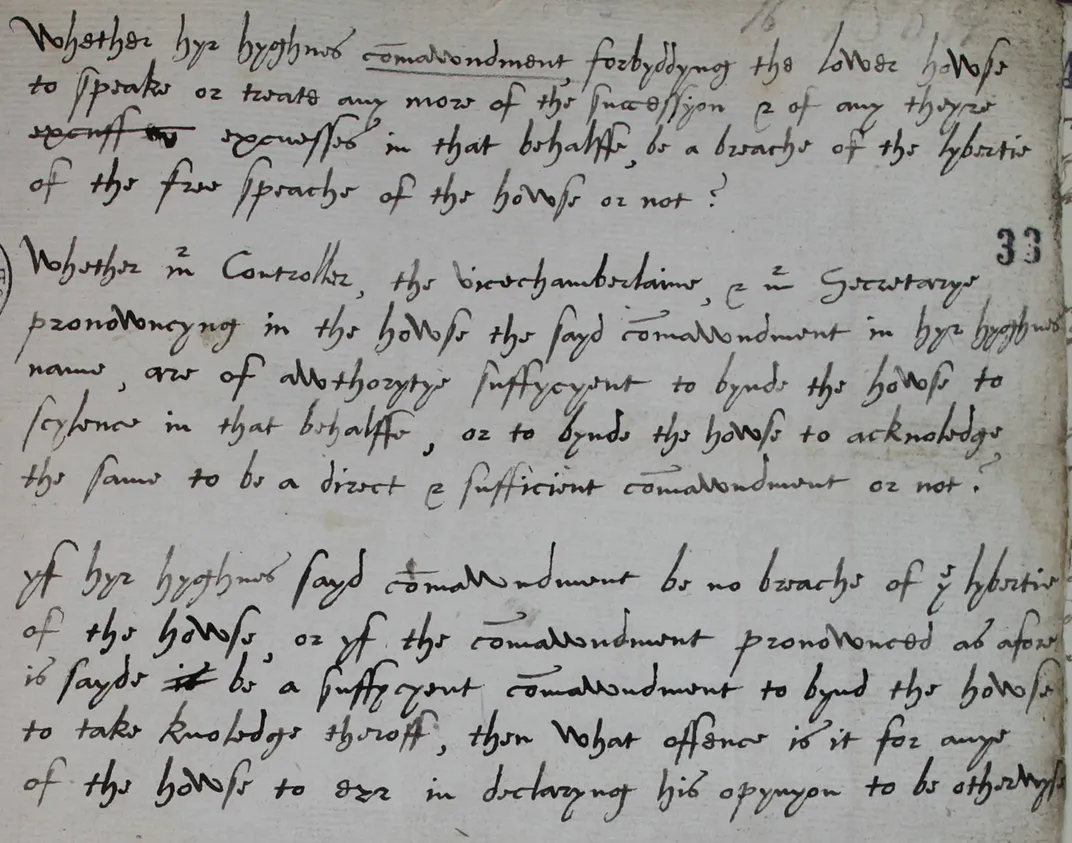 Whether hyr hyghnes com̄awndment, forbyddyng the lower howse
to speake or treate any more of the successyon & of any theyre
excuss excusses in that behalffe, be a breache of the lybertie
of the free speache of the howse or not?
33
Whether mr Controller, the vicechamberlaine, & mr Secretarye
pronowncyng in the howse the sayd com̄awndment in hyr hyghnes
name, are of awthorytye suffycyent to bynde the howse to
scylence in that behalffe, or to bynde the howse to acknoledge
the same to be a direct & sufficient com̄awndment or not?
yf hyr hyghnes sayd com̄awndment be no breache of ye lybertie
of the howse, or yf the com̄awndment pronownced as afore
is sayde it be a suffycyent com̄awndment to bynd the howse
to take knoledge theroff, then what offence is it for anye
of the howse to err in declaryng his opynyon to be otherwyse